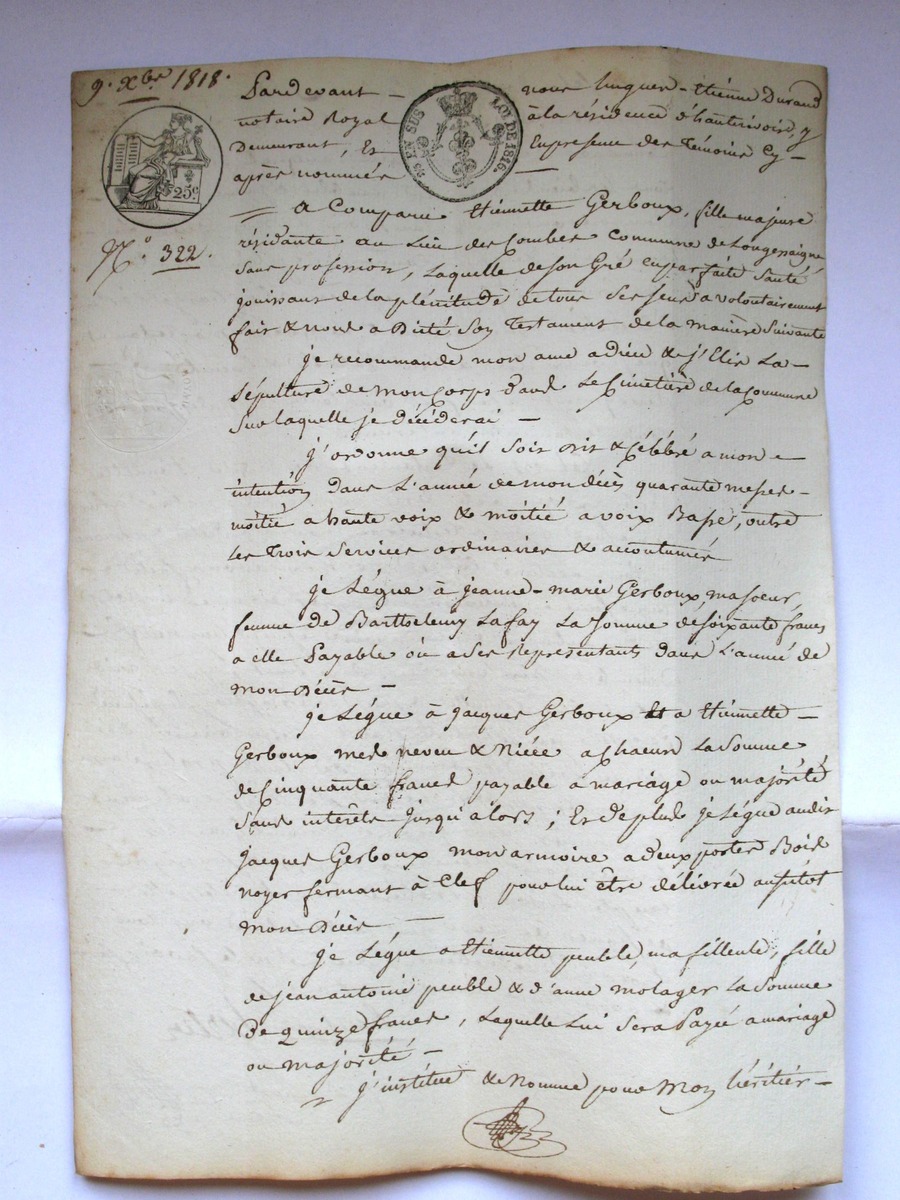 9. Xbre 1818.
25c
25 EN SUS LOI DE 1816.
N.º 322.
Pardevant – nous hugues-Etiénne Durand
notaire Royal à la résidence d'hauterivoire, y
Demeurant, Et En presence des Témoins Cy-
après nommés –
= a Comparu Etiénnette Gerboux, fille majeure
résidante au Lieu des Combes Commune de Longessaigne
Sans profession, Laquelle de son Gré en parfaite Santé
jouissant de la plénitude de tous Ses Sens a volontairement
fait & nous a Dicté Son Testament de la maniere Suivante
je recommande mon ame a dieu & j'Elis La –
Sépulture de mon Corps dans Le Cimetiere de la Commune
Sur laquelle je décéderai –
j'ordonne qu'il Soit dit & Célébré a mon –
intention Dans L'année de mon décès quarante messes –
moitié a haute voix & moitié a voix Basse, outre
Les Trois Services ordinaires & accoutumés
je Légue à jeanne-marie Gerboux, ma soeur,
femme de Barthelemy Lafay La Somme de soixante francs
a elle Payable où a Ses Représentants dans L'année de
mon Décès –
je Légue à jacques Gerboux Et a Etiénnette –
Gerboux mes neveu & Niéce a chacun La Somme
de Cinquante francs payable a mariage ou majorité
Sans intérêts jusqu'alors; Et De plus je Légue audit
jacques Gerboux mon armoire a deux portes Bois
noyer fermant à Clef pour lui être délivrée aussitot
mon Décès –
je Légue a Etiennette peuble, ma filleule, fille
de jean antoine peuble & d'anne molager La Somme
De quinze francs, Laquelle Lui Sera Payée a mariage
ou majorité –
= j'institue & Nomme pour Mon héritier –